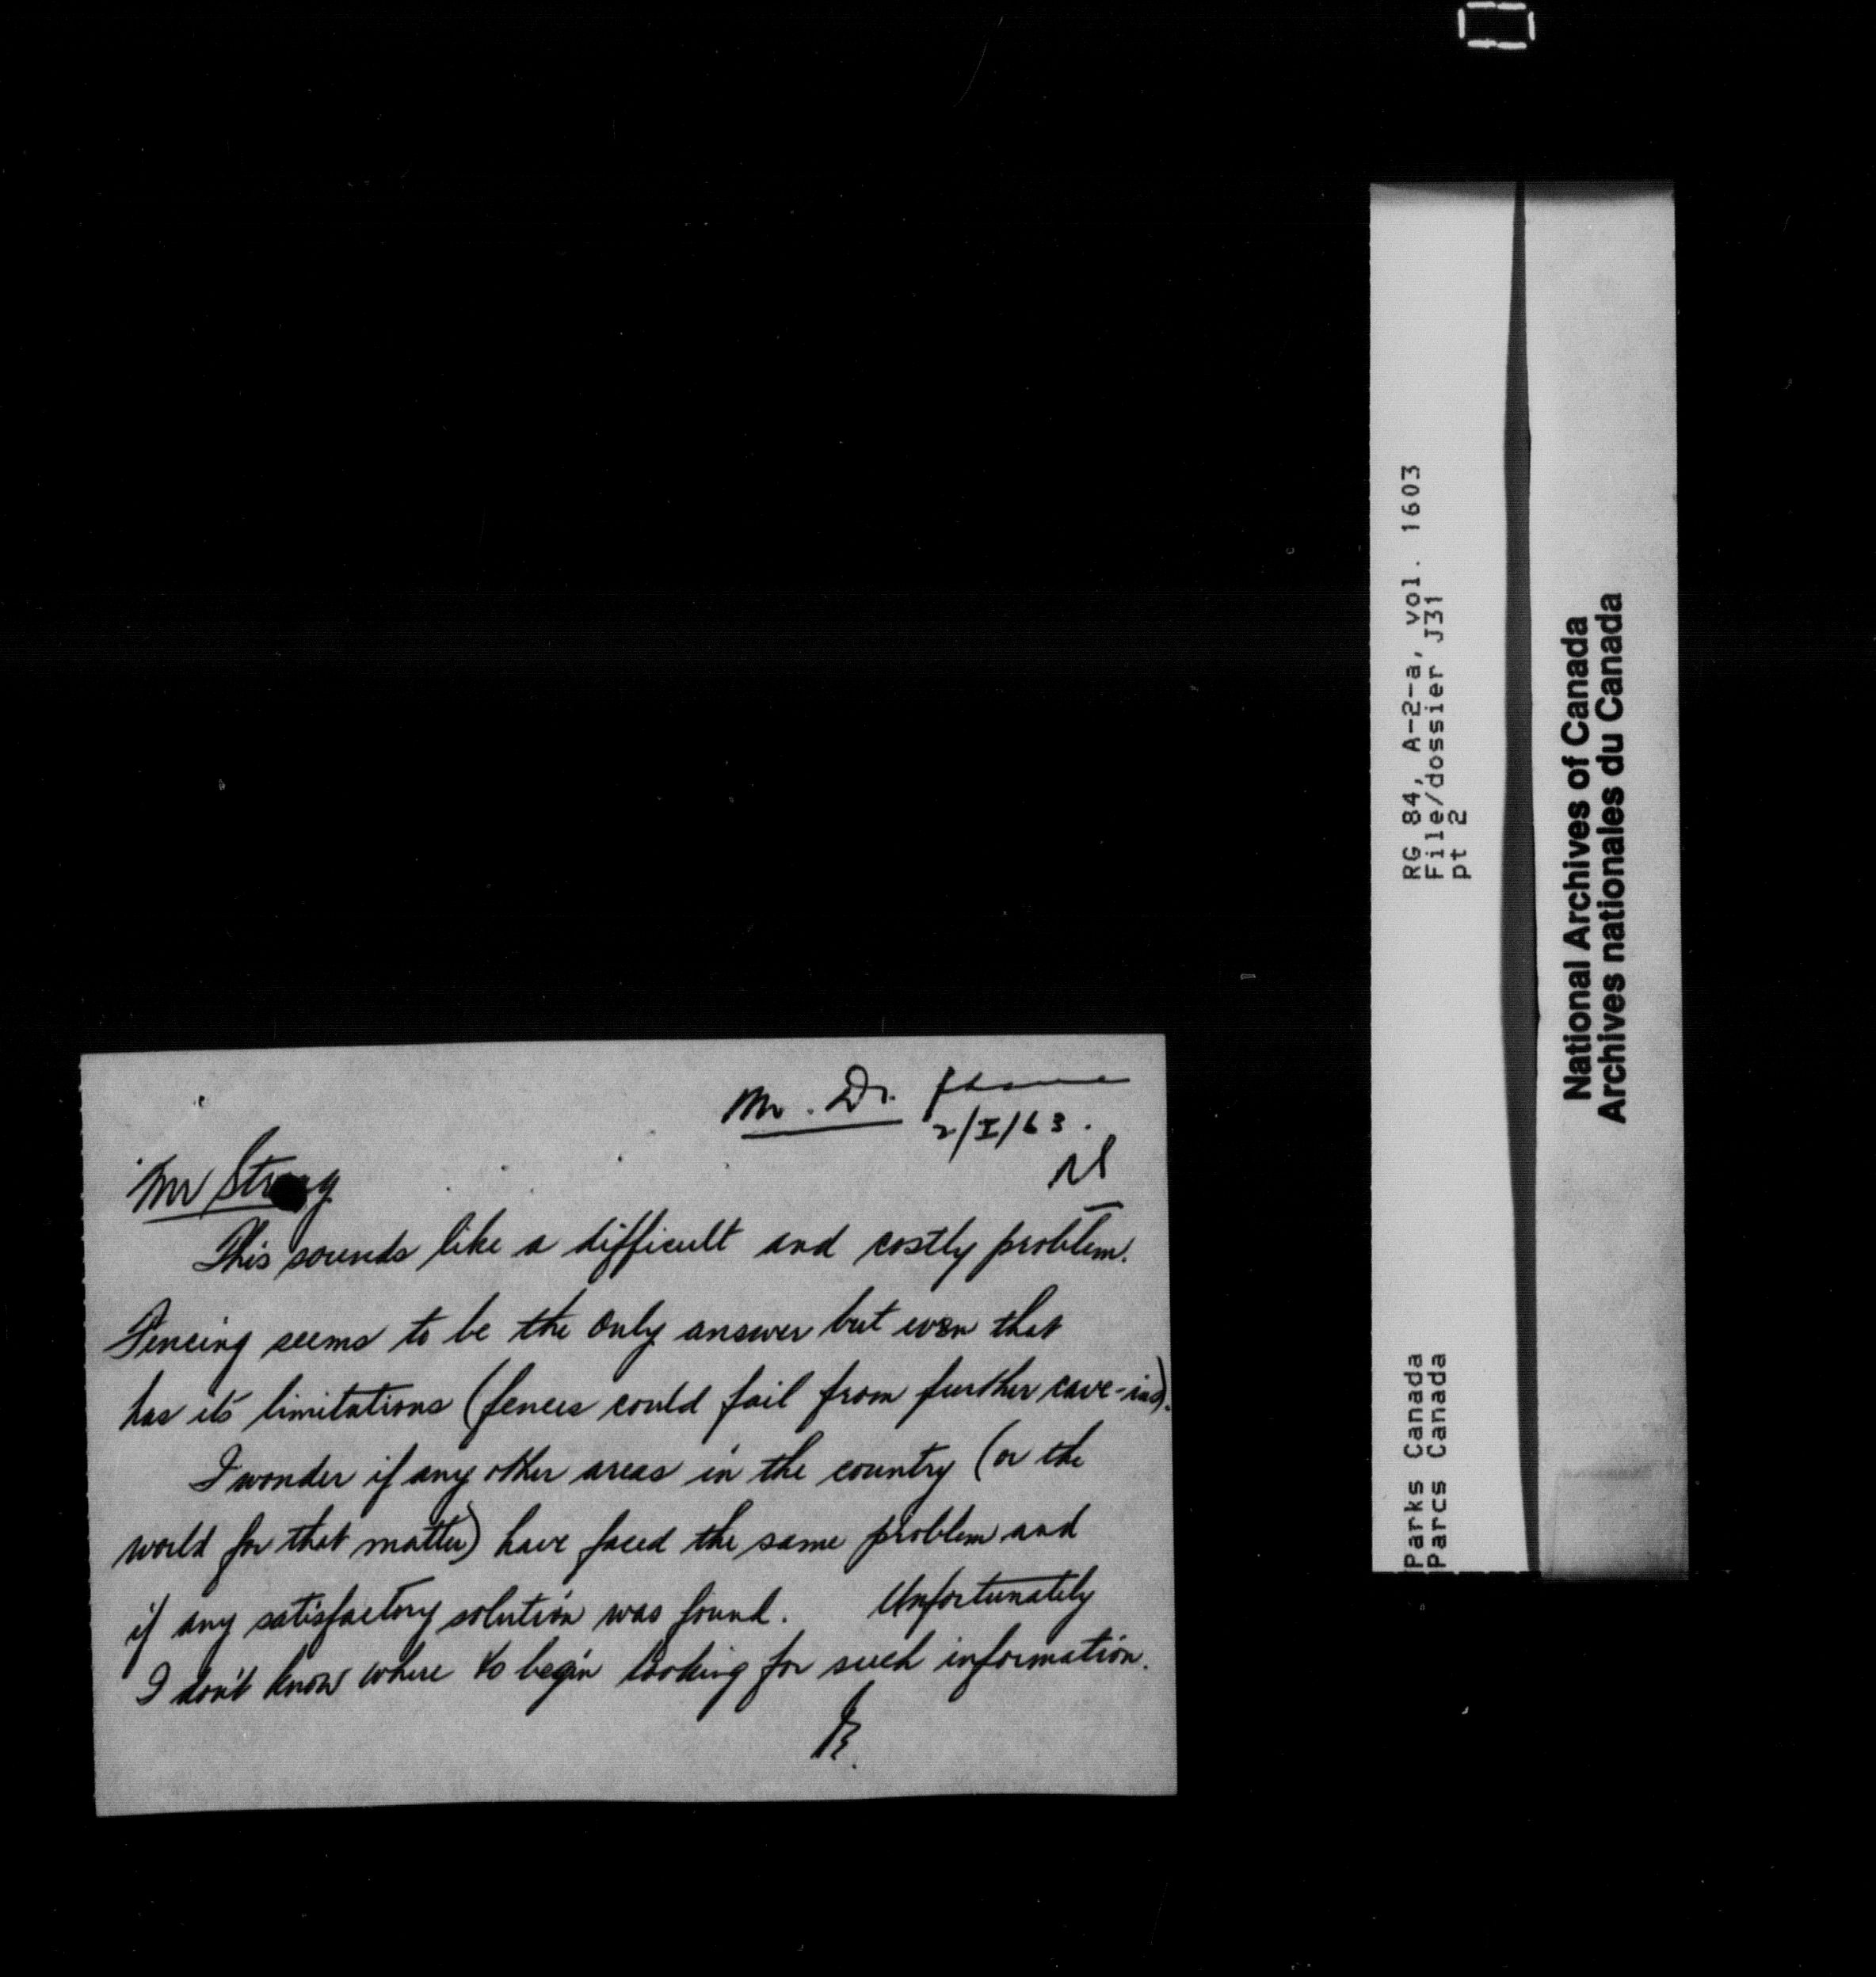 Mr. Dr.
2/I/63.
Mr Strong
This sounds like a difficult and costly problem.
Fencing seems to be the only answer but even that
has it's limitations (fences could fail from further cave-ins).
I wonder if any other areas in the country (or the
world for that matter) have faced the same problem and
if any satisfactory solution was found. Unfortunately
I don't know where to begin looking for such information.
RG 84, A-2-a, vol. 1603
File/dossier J31
pt 2
Parks Canada
Parcs Canada
National Archives of Canada
Archives nationales du Canada